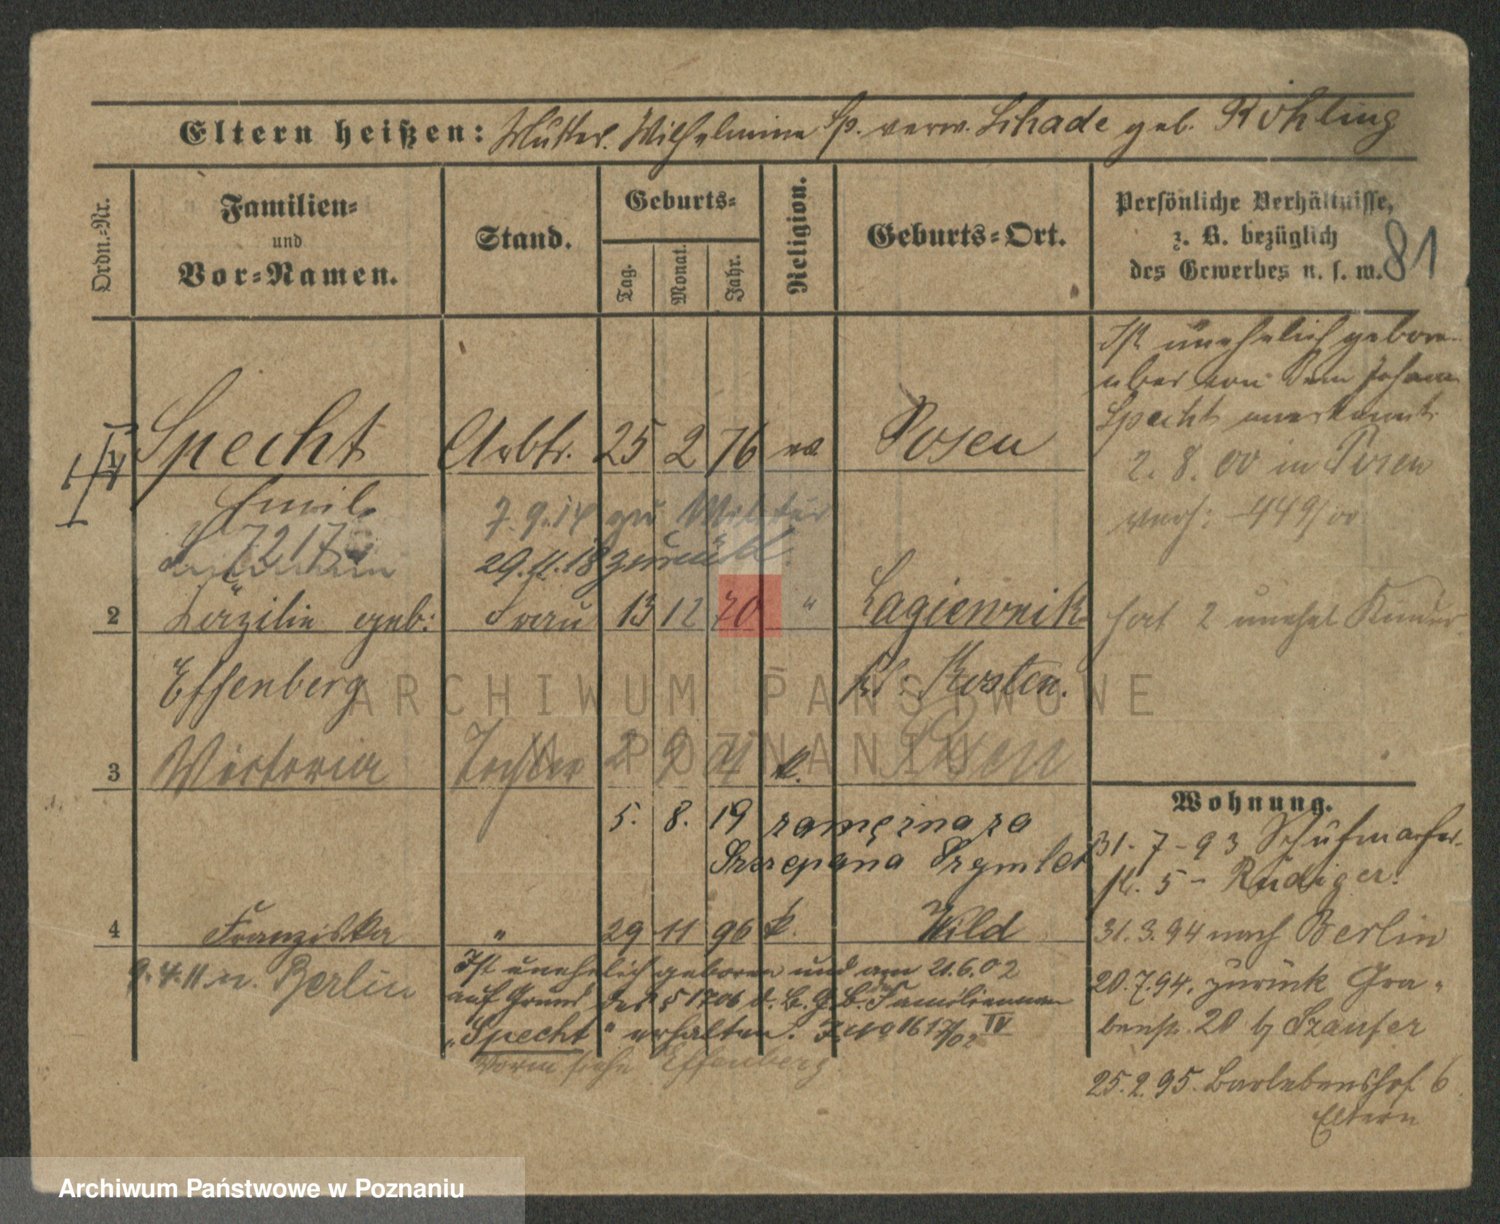 Eltern heißen: Mutter. Wilhelmine Sp. verw. Schade geb. Röhling
Ordn.-Nr.
Familien-
und
Vor-Namen.
Stand.
Geburts-
Tag.
Monat.
Jahr.
Religion.
Geburts-Ort.
Persönliche Verhältnisse,
z. B. bezüglich
des Gewerbes u. s. w.
81
Ist unehelich geboren
aber von dem Johann
Specht anerkannt
1 Specht Arbtr. 25 2 76 ev Posen
2. 8. 00 in Posen
verh: 449/00
Emil
7217
7. 9. 14 zu Militär
29. 11. 18 zurück.
2 Käzilie geb: Frau 13 12 70 " Lagiewnik
hat 2 unehel Kinder
Effenberg
Kr. Kosten.
3 Wictoria Tochter 2 9 91 k. Posen
5. 8. 19 zamężna za
Szczepana Szymler
Wohnung.
31-7-93
5 - Rüdiger.
4 Franziska " 29 11 96 k. Wild
31. 3. 94 nach Berlin
9. 4. 11 n. Berlin
Ist unehelich geboren und am 21.6.02
auf Grund des § 1706 d. B. G. B. Familiennamen
„Specht" erhalten. 1617/02 IV
Vorm siehe Effenberg
20.7.94. zurück Gra-
benstr. 20 b/ Szaufer
25. 2. 95. Barlebenshof 6
Eltern
ARCHIWUM PAŃSTWOWE
W POZNANIU
Archiwum Państwowe w Poznaniu